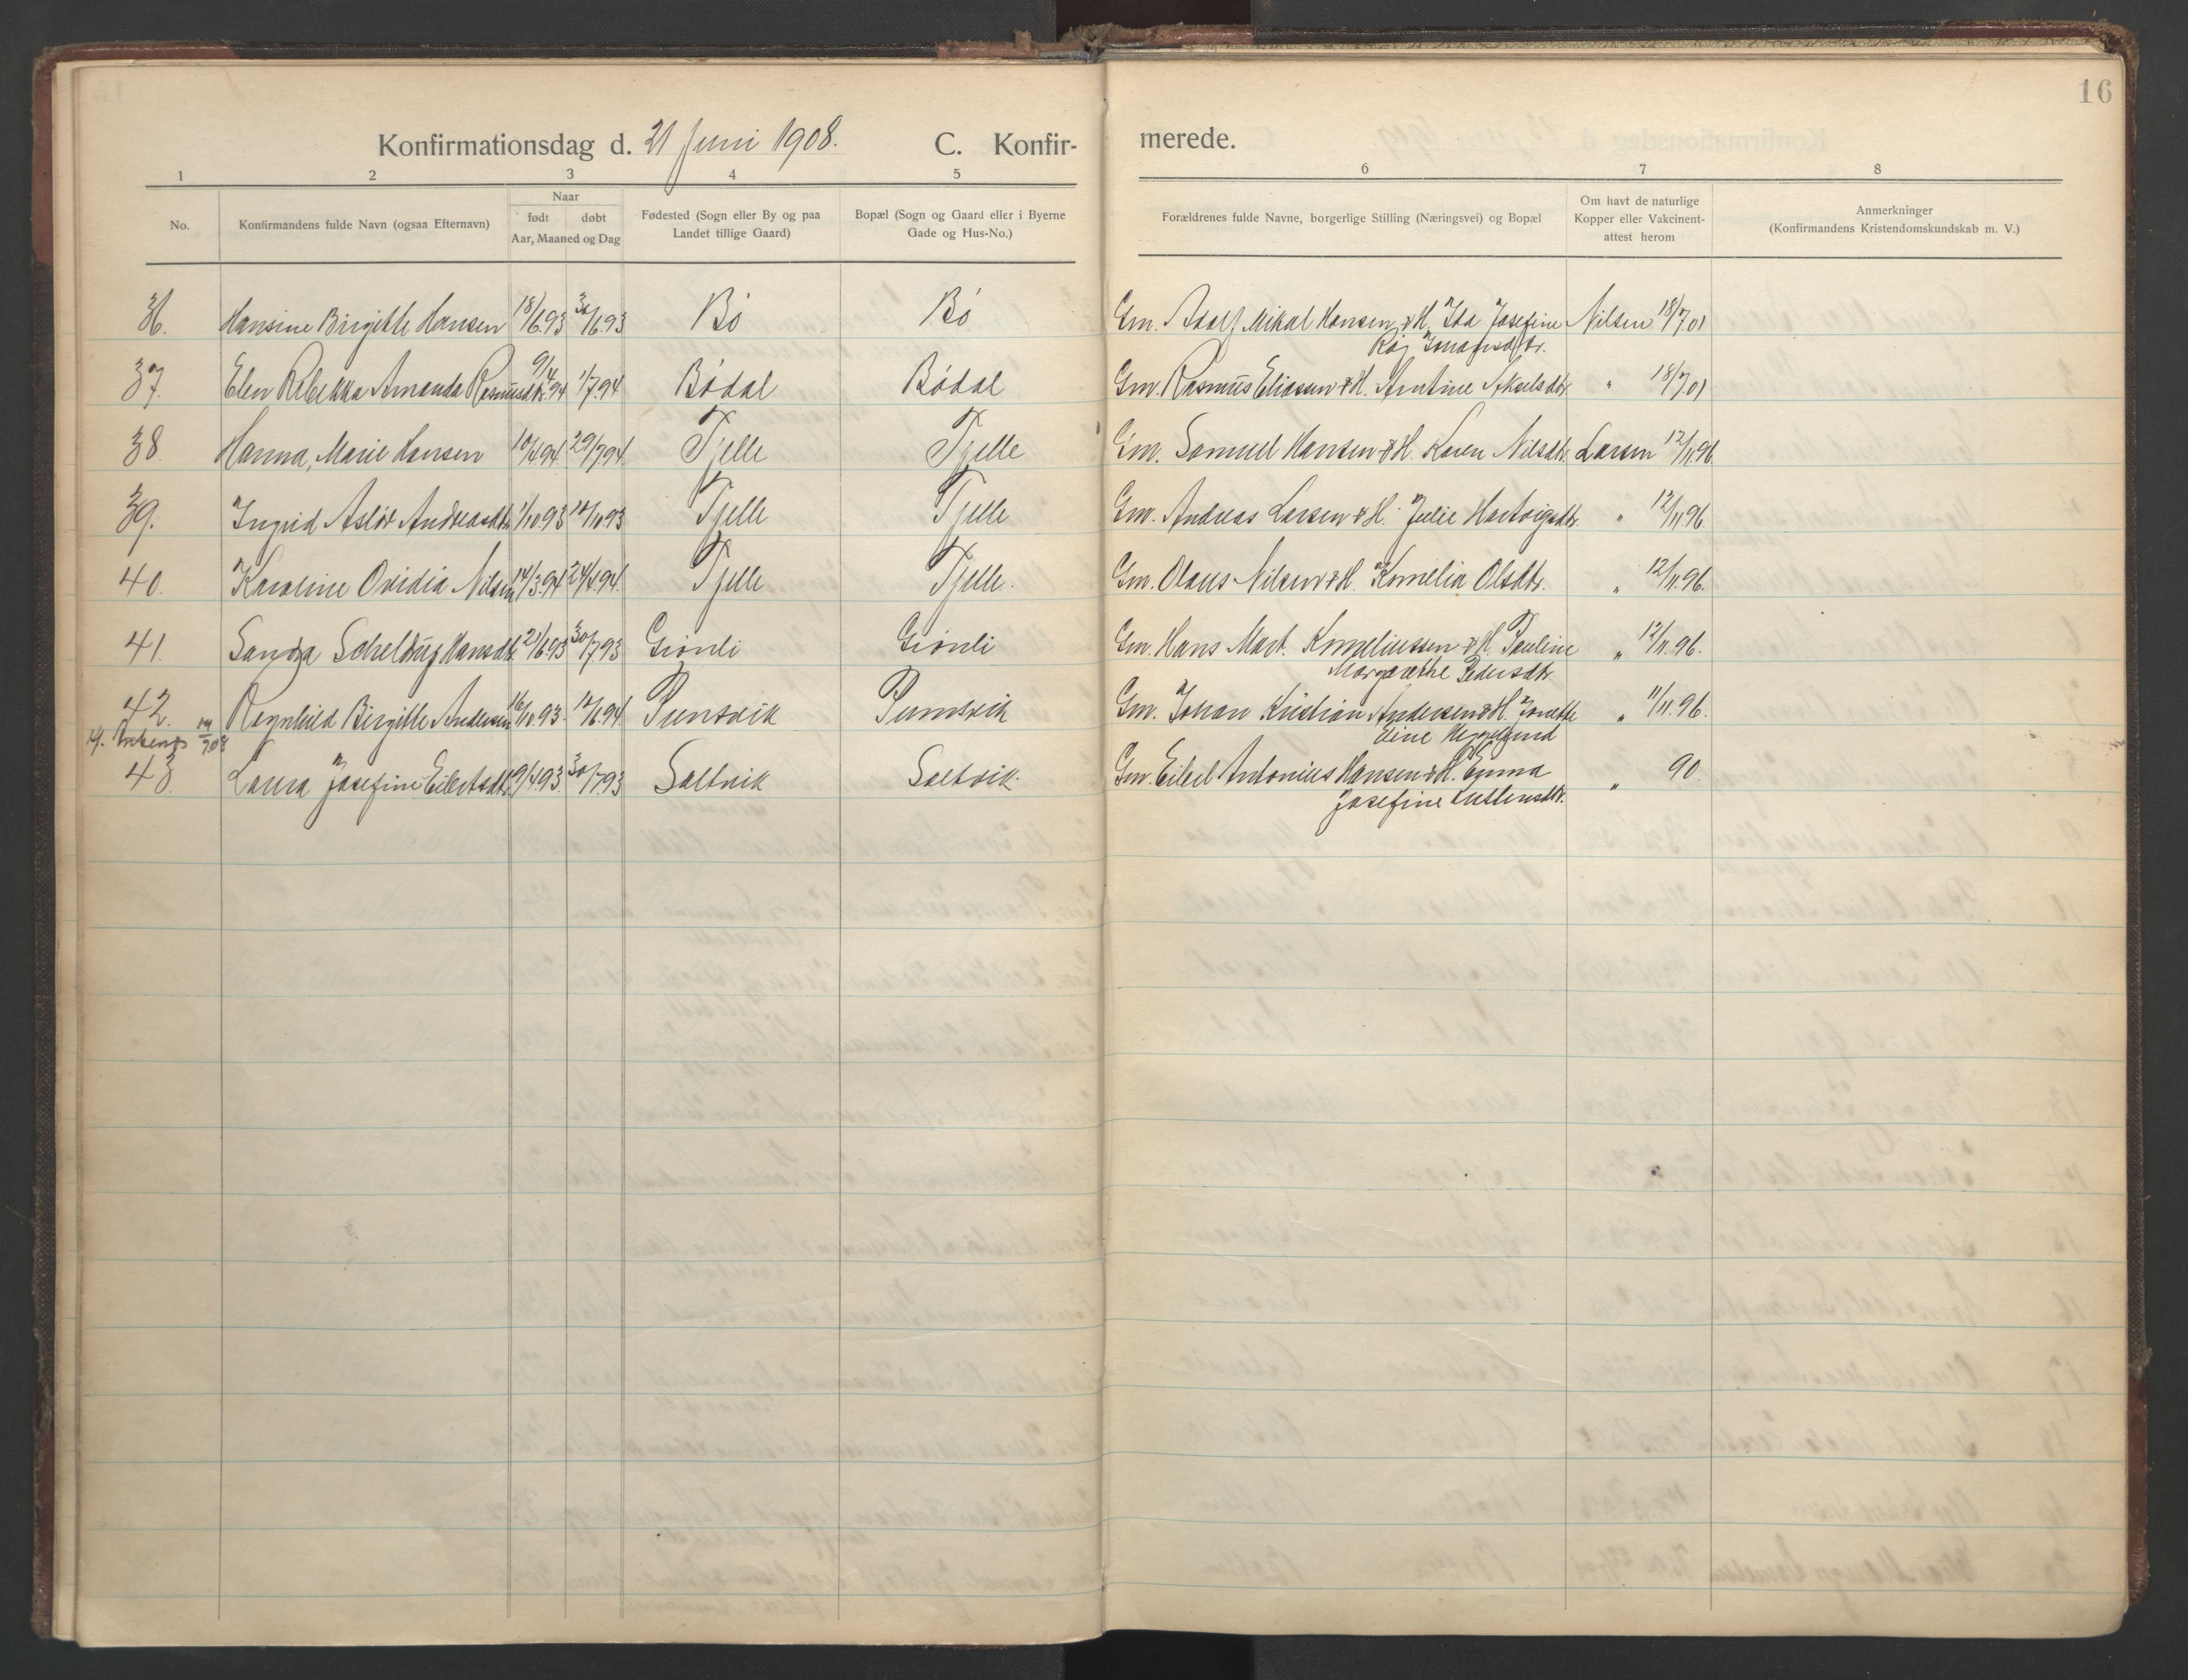 16
Konfirmationsdag d. 21 Juni 1908. C. Konfir- merede.
1 2 3 4 5 6 7 8
No. Konfirmandens fulde Navn (ogsaa Efternavn) Naar født døbt Aar, Maaned og Dag Fødested (Sogn eller By og paa Landet tillige Gaard) Bopæl (Sogn og Gaard eller i Byerne Gade og Hus-No.) Forældrenes fulde Navne, borgerlige Stilling (Næringsvei) og Bopæl Om havt de naturlige Kopper eller Vakcinent- attest herom Anmerkninger (Konfirmandens Kristendomskundskab m. V.)
36. Hansine Birgitte Hansen 18/6.93 30/6.93 Bø Bø Gm. Adolf Mikal Hansen & H. Ida Josefine Nilsen 18/7.01
Kaj
37. Elen Rebekka Amanda Rasmusdtr. 9/4.94 1/7.94 Bødal Bødal Gm. Rasmus Eliasen & H. Arntine " 18/7.01
38 Hanna, Marie Hansen 10/4.94. 29/7.94. Tjelle Tjelle Gm. Samuel Hansen & H. Karen Nilsdtr. Larsen 12/11.96.
39. Ingrid Asløv Andreasdtr. 1/10.93 12/11.93 Tjelle Tjelle Gm. Andreas Larsen & H. Julie Hartvigsdtr. " 12/11.96.
40. Karoline Ovidia Nilsen 14/3.94 24/4.94. Tjelle Tjelle. Gm. Olaus Nilsen & H. Kornelia Olsdtr. " 12/11.96.
41. Sandra Scheldrup Hansdtr. 21/6.93 30/7.93 Grønli Grønli Gm. Hans Mart. Korneliussen & H. Pauline " 12/11.96.
Margrethe Pedersdtr.
42. Ragnhild Birgitte Andersen 16/10.93. 12/6.94. Punsvik Punsvik Gm. Johan Kristian Andersen & H. Jonette " 11/11.96.
14/7.08 Eline Heggelund
43. Laura Josefine Eibertsdtr. 9/4.93. 30/7.93 Saltvik Saltvik. Gm. Eibert Antonius Hansen & H. Emma " 90.
Josefine